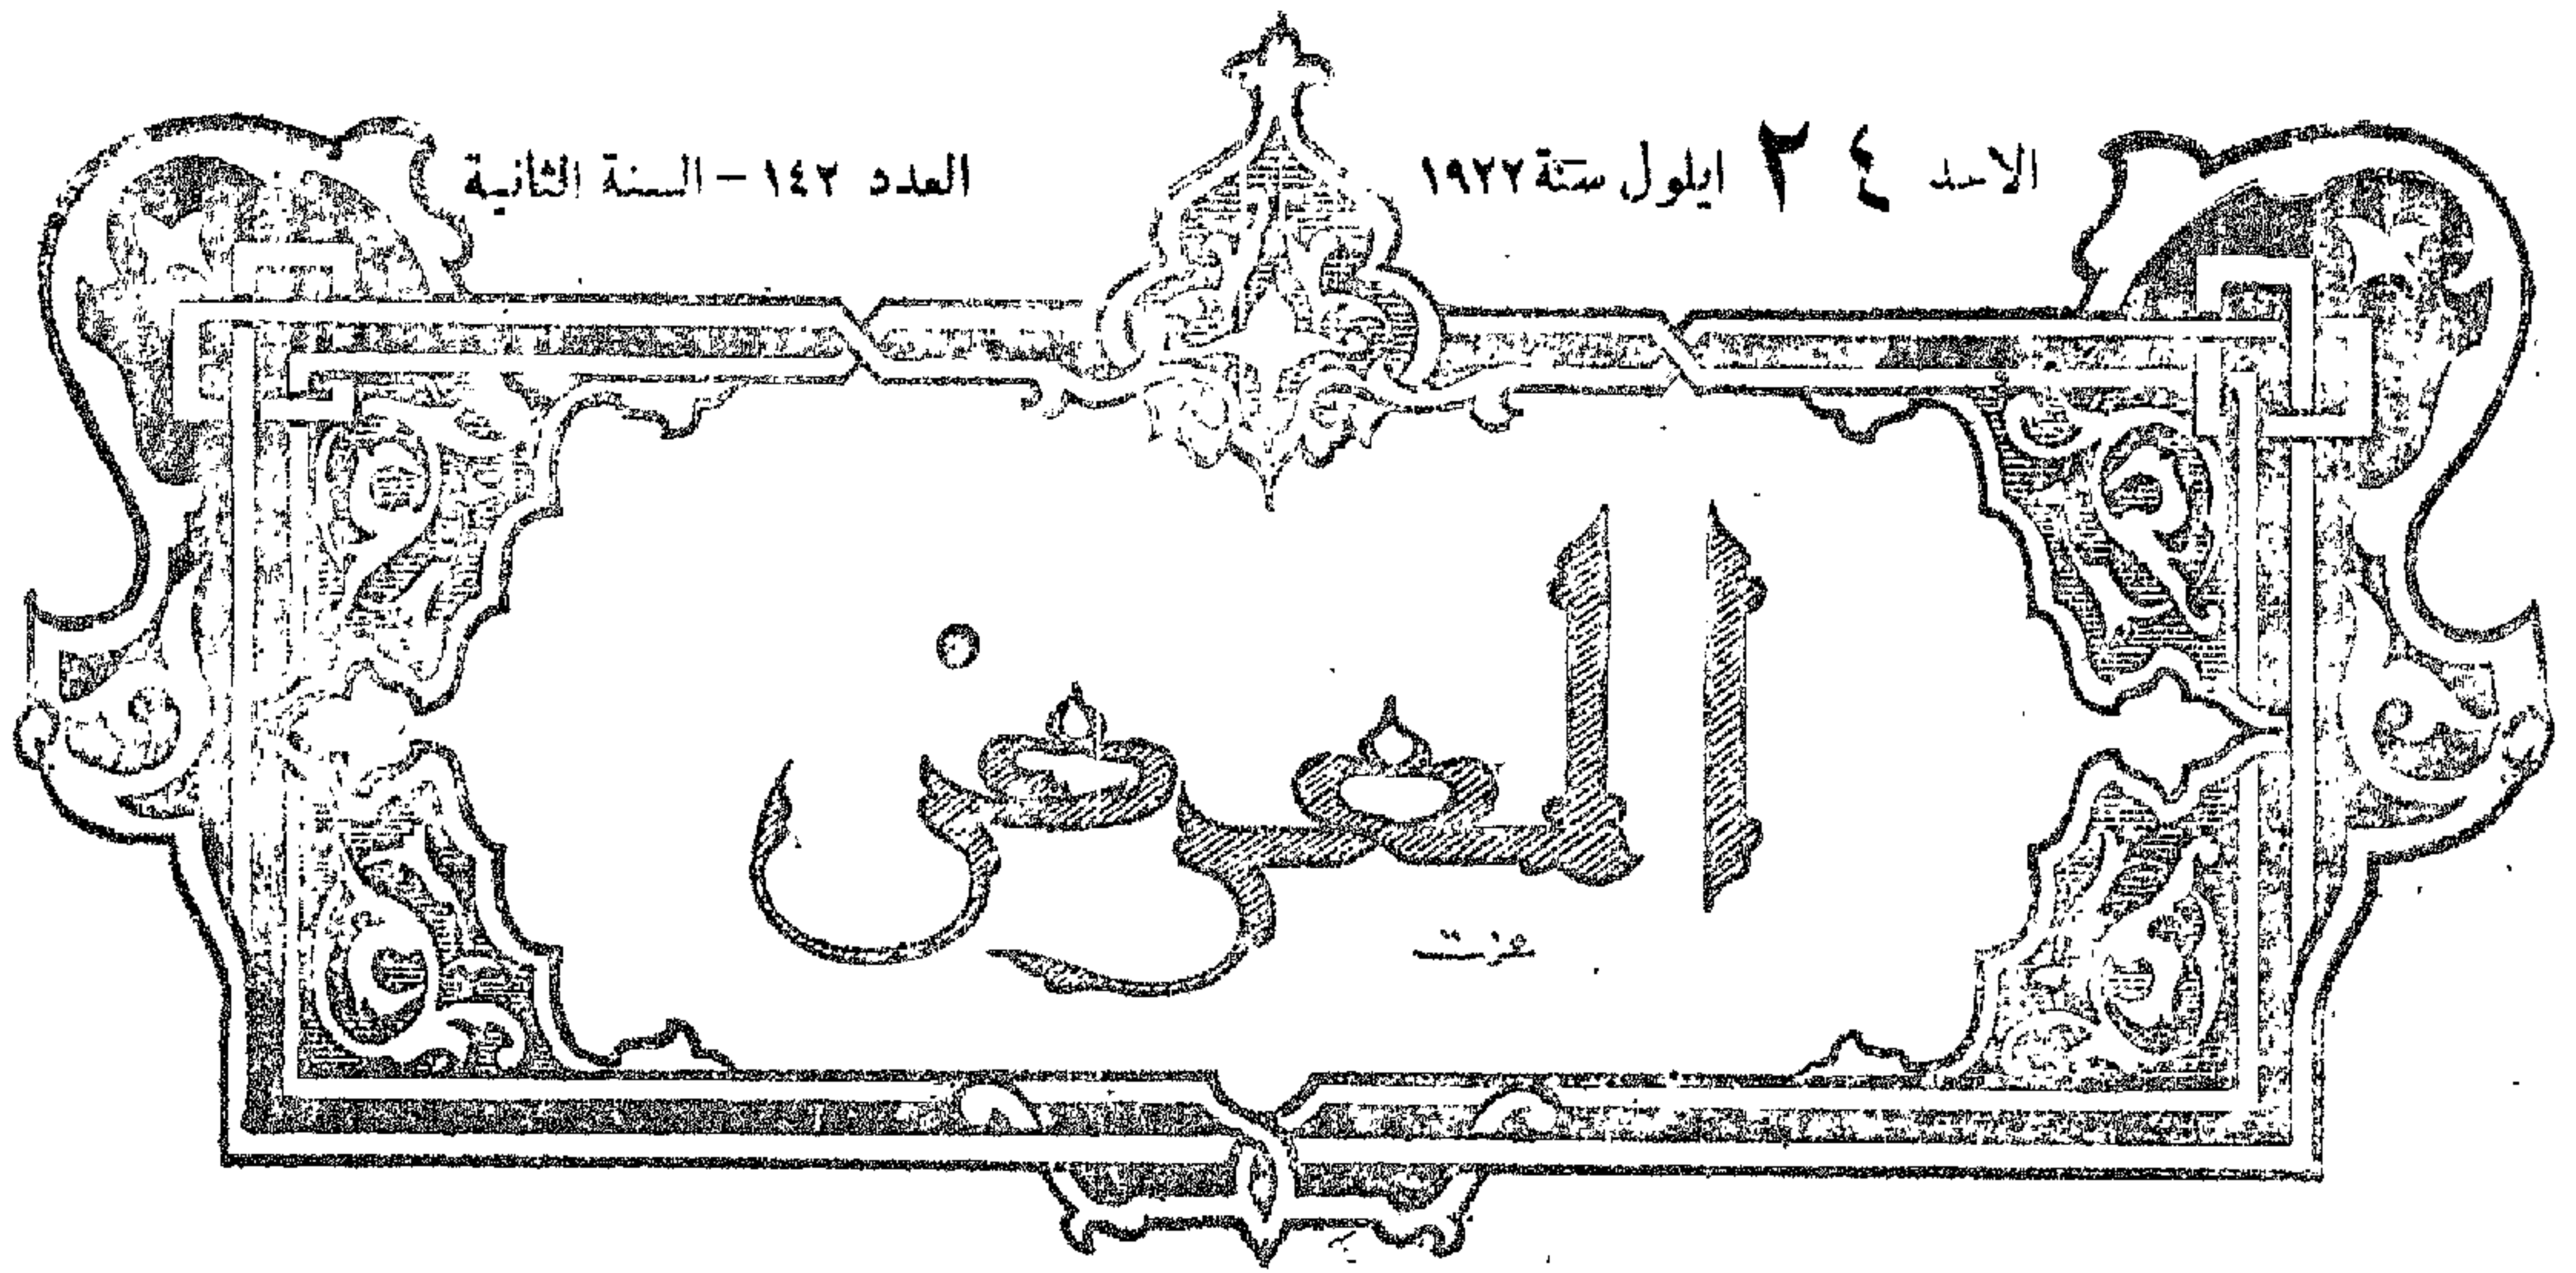 الاحد ٢٤ ايلول سنة ١٩٢٢
العدد ١٤٢ – السنة الثانية
المعرض
عزت